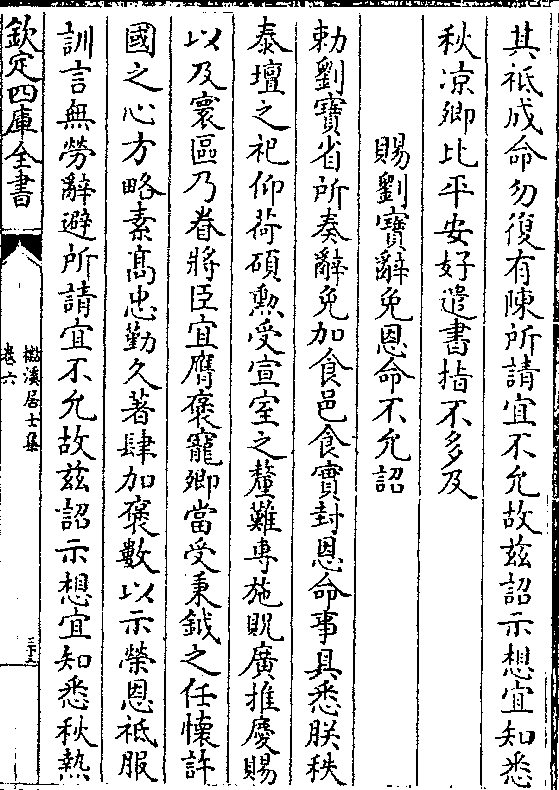 其祗成命勿復有陳所請宜不允故兹詔示想宜知悉
秋凉卿比平安好遣書指不多及
賜劉寶辭免恩命不允詔
勅劉寶省所奏辭免加食邑食實封恩命事具悉朕秩
泰壇之祀仰荷碩勲受宣室之釐難專施貺廣推慶賜
以及寰區乃眷將臣宜膺褒寵卿當受秉鉞之任懐許
國之心方略素髙忠勤久著肆加褒數以示榮恩祗服
訓言無勞辭避所請宜不允故兹詔示想宜知悉秋熱
欽定四庫全書
溪居士集
卷六
三十三